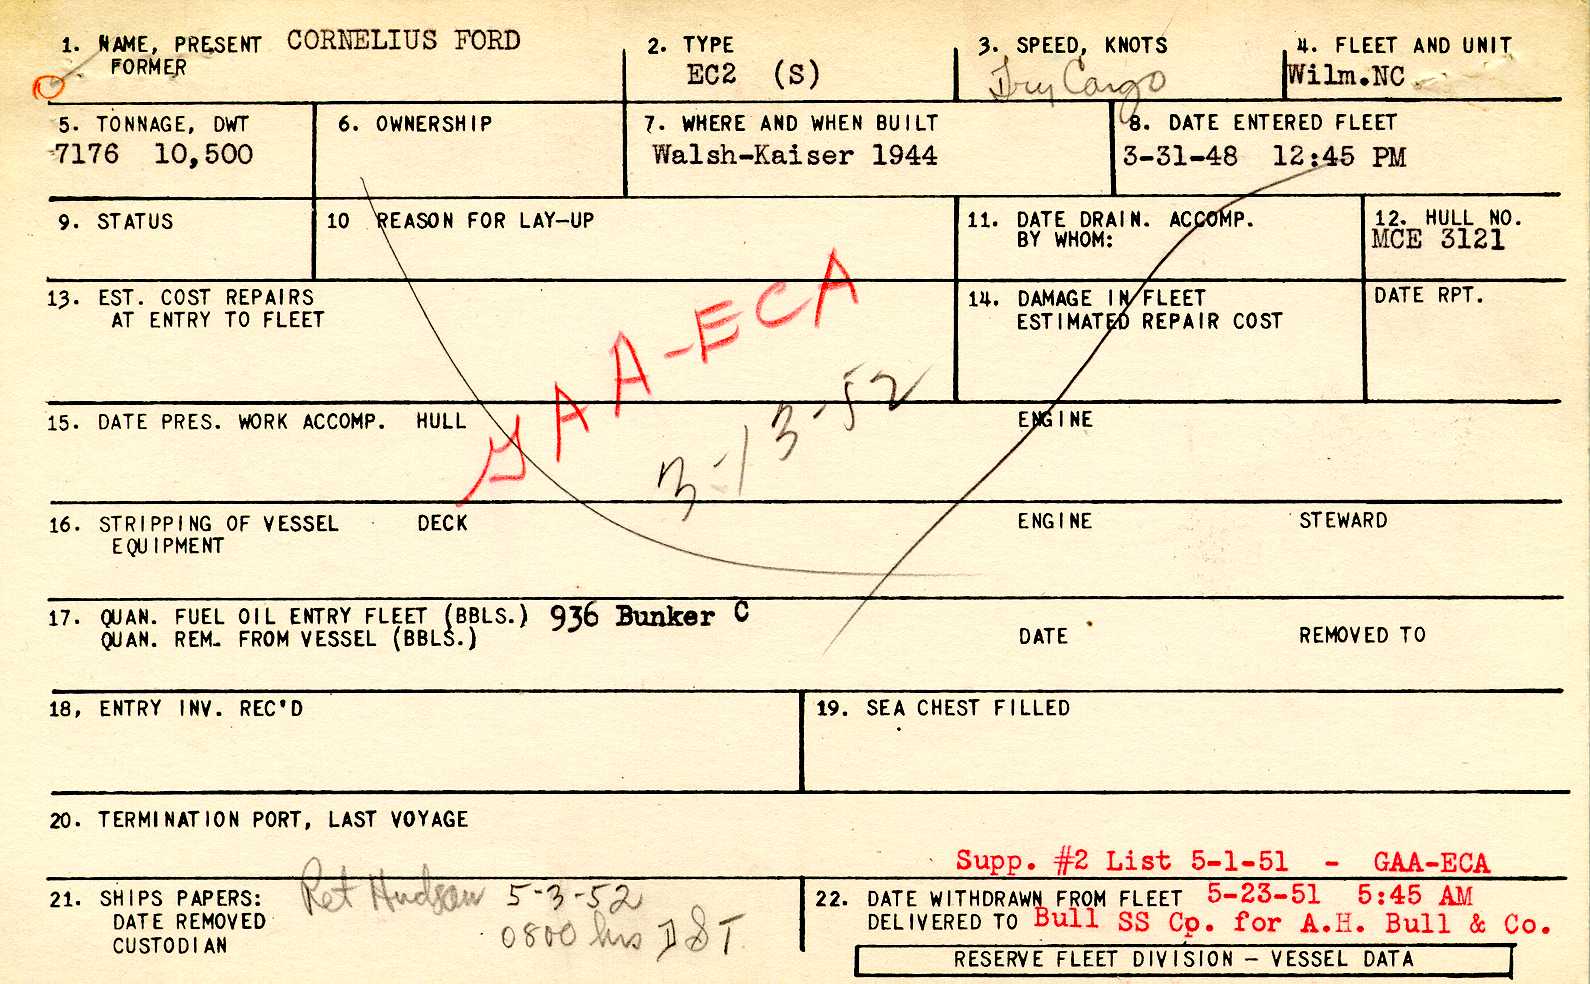 1. NAME, PRESENT CORNELIUS FORD
FORMER
2. TYPE
EC2 (S)
3. SPEED, KNOTS
Dry Cargo
4. FLEET AND UNIT
Wilm.NC.
5. TONNAGE, DWT
7176 10,500
6. OWNERSHIP
7. WHERE AND WHEN BUILT
Walsh-Kaiser 1944
8. DATE ENTERED FLEET
3-31-48 12:45 PM
9. STATUS
10 REASON FOR LAY-UP
11. DATE DRAIN. ACCOMP.
BY WHOM:
12. HULL NO.
MCE 3121
13. EST. COST REPAIRS
AT ENTRY TO FLEET
14. DAMAGE IN FLEET
ESTIMATED REPAIR COST
DATE RPT.
GAA-ECA
3-13-52
15. DATE PRES. WORK ACCOMP. HULL
ENGINE
16. STRIPPING OF VESSEL DECK
EQUIPMENT
ENGINE
STEWARD
17. QUAN. FUEL OIL ENTRY FLEET (BBLS.) 936 Bunker C
QUAN. REM. FROM VESSEL (BBLS.)
DATE
REMOVED TO
18, ENTRY INV. REC'D
19. SEA CHEST FILLED
20. TERMINATION PORT, LAST VOYAGE
Supp. #2 List 5-1-51 - GAA-ECA
21. SHIPS PAPERS: Ret Hudson 5-3-52
DATE REMOVED 0800 hrs DST
CUSTODIAN
22. DATE WITHDRAWN FROM FLEET 5-23-51 5:45 AM
DELIVERED TO Bull SS Co. for A.H. Bull & Co.
RESERVE FLEET DIVISION - VESSEL DATA